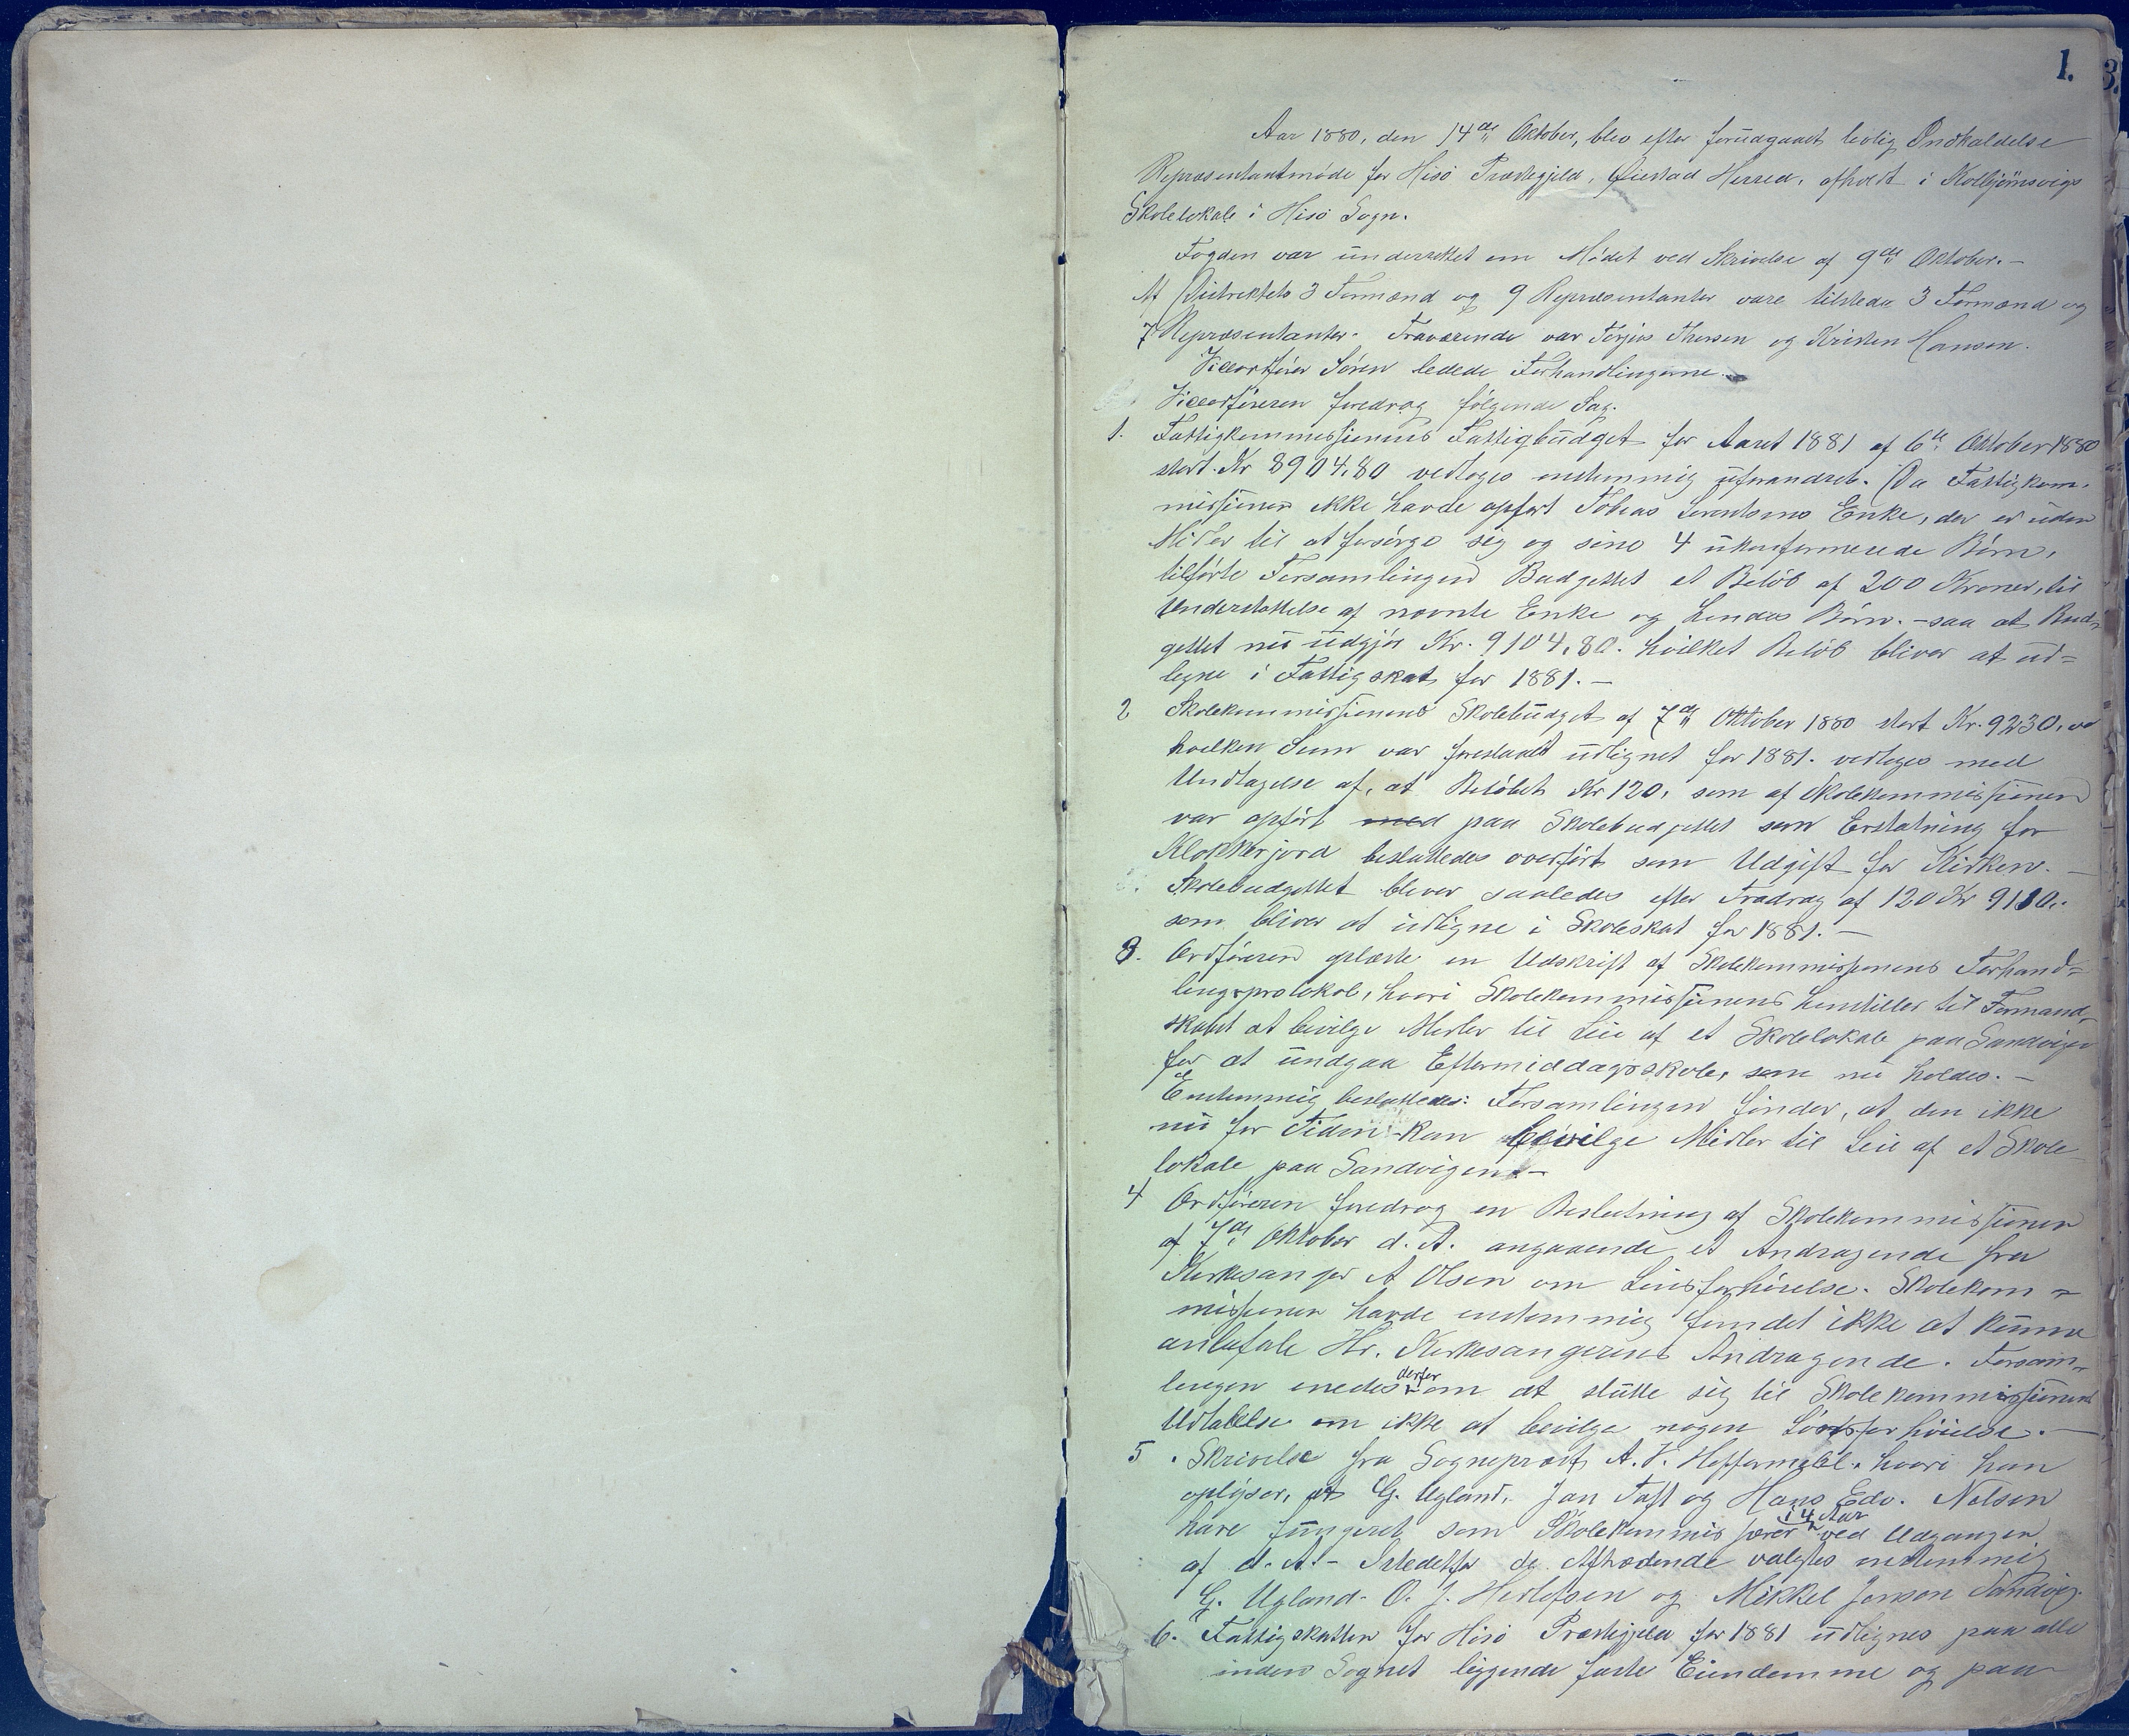 1.
3.
Aar 1880, den 14de Oktober, blev efter forudgaaet lovlig Indkaldelse
Repræsentantmöde for Hisö Præstegjeld, Öiestad Herred, afholdt i Kolbjörnsvigs
Skolelokale i Hisö Sogn.
Fogden var underrettet om Mödet ved Skrivelse af 9de Oktober. —
Af Distriktets 3 Formænd og 9 Repræsentanter vare tilstede 3 Formænd og
7 Repræsentanter. Fraværende var Terjus Thorsen og Kristen Hansen.
Viceordförer Sören ledede Forhandlingerne.
Viceordföreren foredrog fölgende Sag.
1. Fattigkommissionens Fattigbudget for Aaret 1881 af 6te Oktober 1880
stort Kr 8904,80 vedtoges enstemmig uforandret. Da Fattigkom-
missionen ikke havde opfört Tobias Lorentsens Enke, der er uden
Midler til at forsörge sig og sine 4 ukonfirmerede Börn,
tilförte Forsamlingen Budgettet et Belöb af 200 Kroner, til
Understöttelse af nævnte Enke og hendes Börn. — saa at Bud-
gettet nu udgjör Kr. 9104,80. hvilket Belöb bliver at ud=
legne i Fattigskat for 1881. —
2 Skolekommissionens Skolebudget af 7de Oktober 1880 stort Kr. 9230,00
hvilken Sum var foreslaaet udlignet for 1881. vedtoges med
Undtagelse af, at Belöbet Kr 120, som af Skolekommissionen
var opfört med paa Skolebudgettet som Erstatning for
Klokkerjord besluttedes overfört som Udgift for Kirken. —
Skolebudgettet bliver saaledes efter Fradrag af 120 Kr 9110,-
som bliver at udligne i Skoleskat for 1881. —
3. Ordföreren oplæste en Udskrift af Skolekommissionens Forhand=
lingsprotokol, hvori Skolekommissionens henstiller til Formand-
skabet at bevilge Midler til Leie af et Skolelokale paa Sandvigen
for at undgaa Eftermiddagsskole, som nu holdes. —
Enstemmig besluttedes: Forsamlingen finder, at den ikke
nu for Tiden kan bevilge Midler til Leie af et Skole-
lokale paa Sandvigen. —
4 Ordföreren foredrog en Beslutning af Skolekommissionen
af 7de Oktober d. A. angaaende et Andragende fra
Kirkesanger A Olsen om Lönsforhöielse. Skolekom=
missionen havde enstemmig fundet ikke at kunne
anbefale Hr. Kirkesangerens Andragende. Forsam-
lingen enedes derfor om at slutte sig til Skolekommissionens
Udtalelse om ikke at bevilge nogen Lönsforhöielse. —
5. Skrivelse fra Sogneprest A. V. Heffermehl, hvori han
oplyser, at G. Ugland, Jan Taft og Hans Edv. Nelsen
have fungeret som Skolekommissærer i 4 Aar ved Udgangen
af d. A. — Istedetfor de Aftrædende valgtes enstemmig
G. Ugland. O. J. Herlofsen og Mikkel Jenson Sandvig.
6. Fattigskatten for Hisö Præstegjeld for 1881 udlignes paa alle
inden Sognet liggende faste Eiendomme og paa